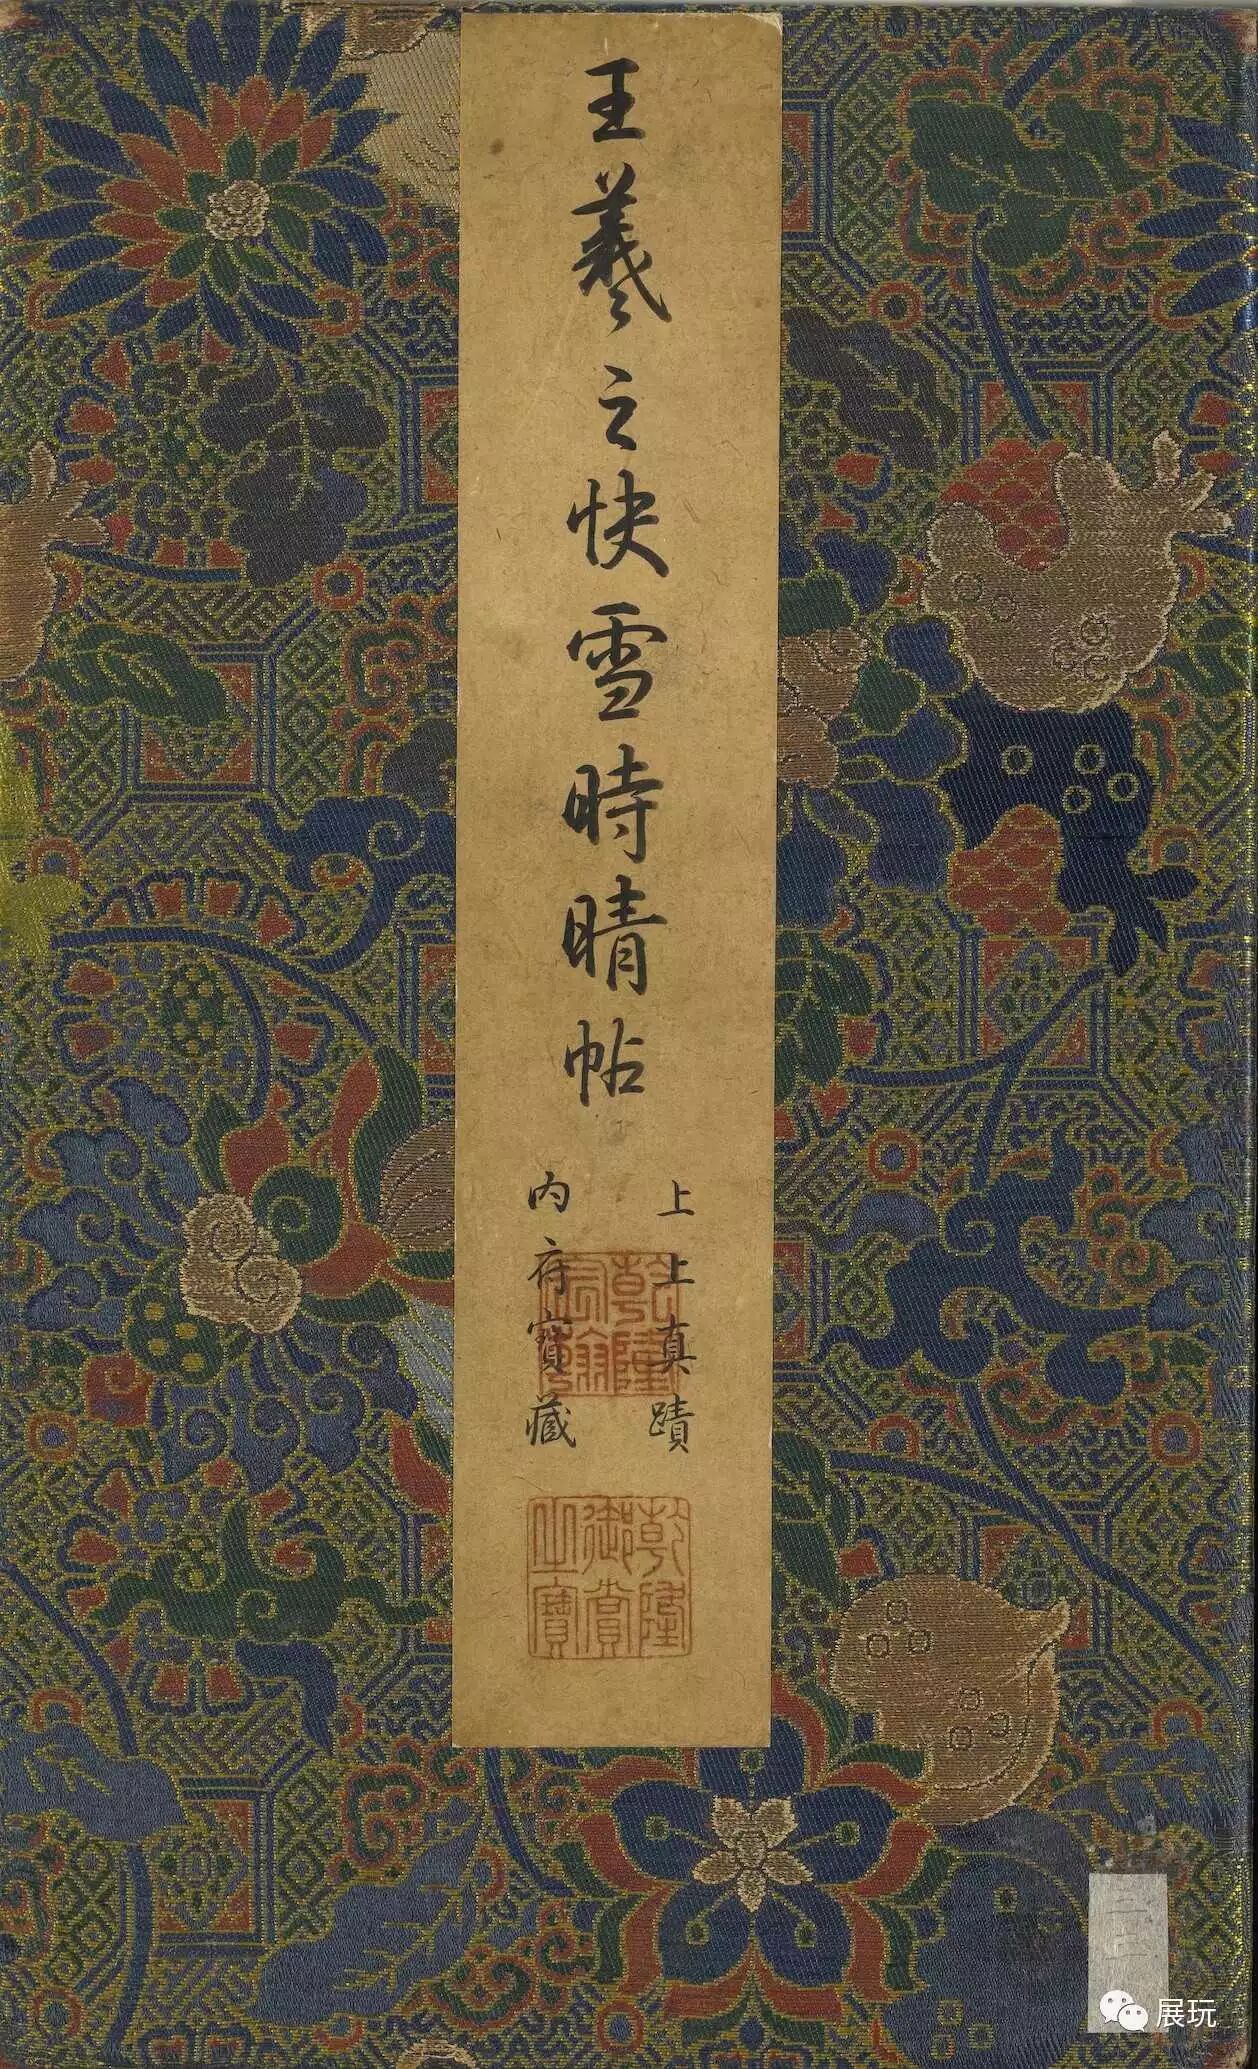 王羲之快雪時晴帖
上上真蹟
内府寶藏
乾隆宸翰
乾隆御賞之寶
展玩